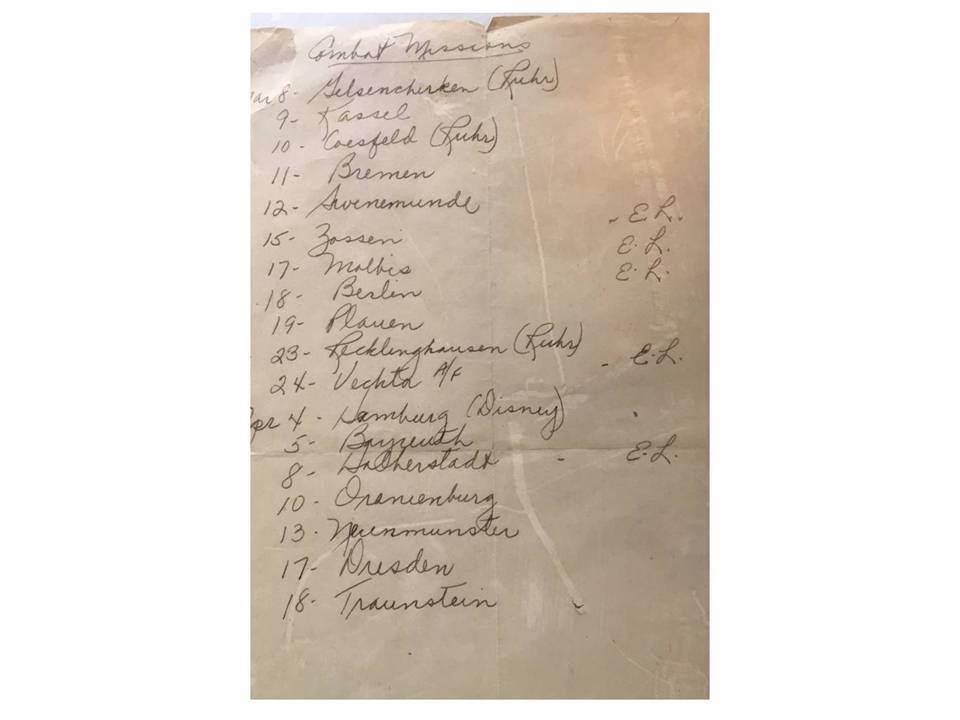 Combat Missions
Mar 8- Gelsencherken (Ruhr)
9- Kassel
10- Coesfeld (Ruhr)
11- Bremen
12- Swenemunde - E.L.
15- Zossen E.L.
17- Molbis E.L.
18- Berlin
19- Plauen
23- Recklinghausen (Ruhr) - E.L.
24- Vechta A/F
Apr 4- Hamburg (Disney)
5- Bayreuth
8- Halberstadt - E.L.
10- Oranienburg
13- Neuenmunster
17- Dresden
18- Traunstein